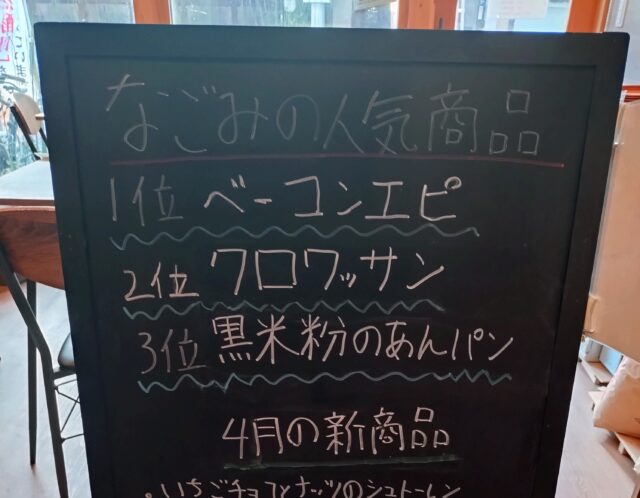 なごみの人気商品
1位 ベーコンエピ
2位 クロワッサン
3位 黒米粉のあんパン
4月の新商品
・いちごチョコとナッツのシュトーレン